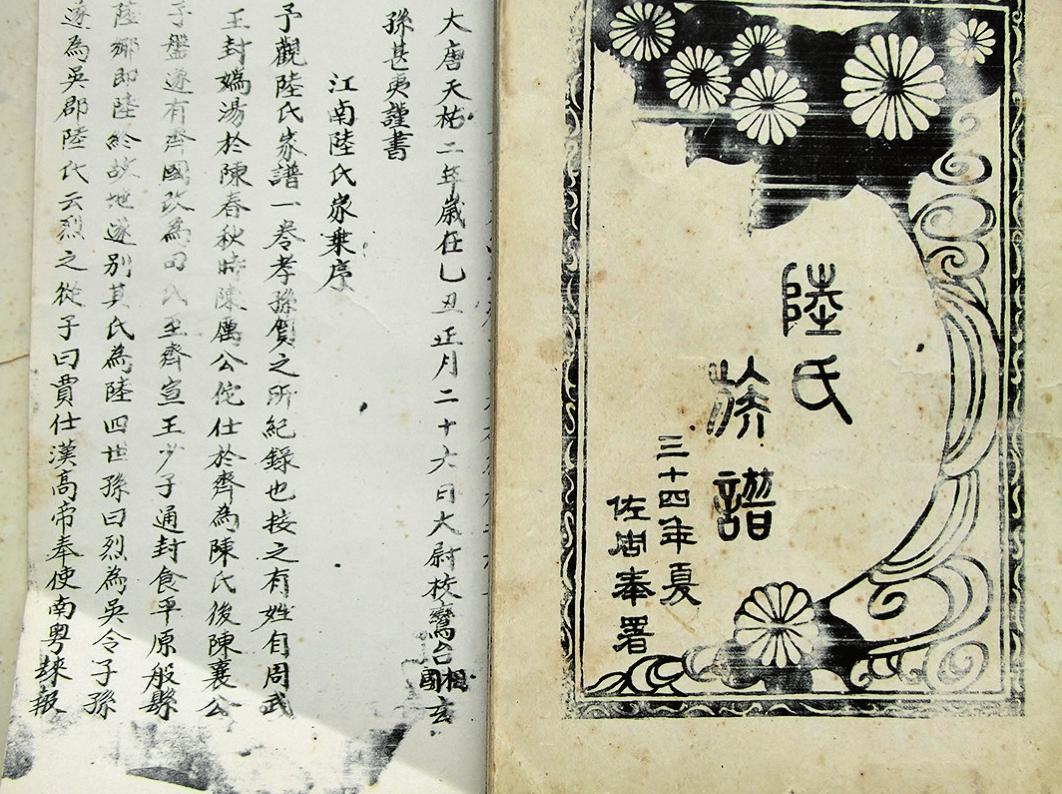 陸氏
族譜
三十四年夏
佐周奉署
大唐天祐二年歲任乚丑正月二十六日大尉校鸞台相國玄
孫甚夷謹書
江南陸氏家乗序
予觀陸氏家譜一卷孝孫賀之所紀錄也按之有姓自周武
王封媯湯於陳春秋時陳厲公佗仕於齊為陳氏後陳襄公
子盤遂有齊國改為田氏至齊宣王少子通封食平原般縣
陸鄉即陸終故地遂別其氏為陸四世孫曰烈為吳令子孫
遂為吳郡陸氏云烈之從子曰賈仕漢高帝奉使南粵招報